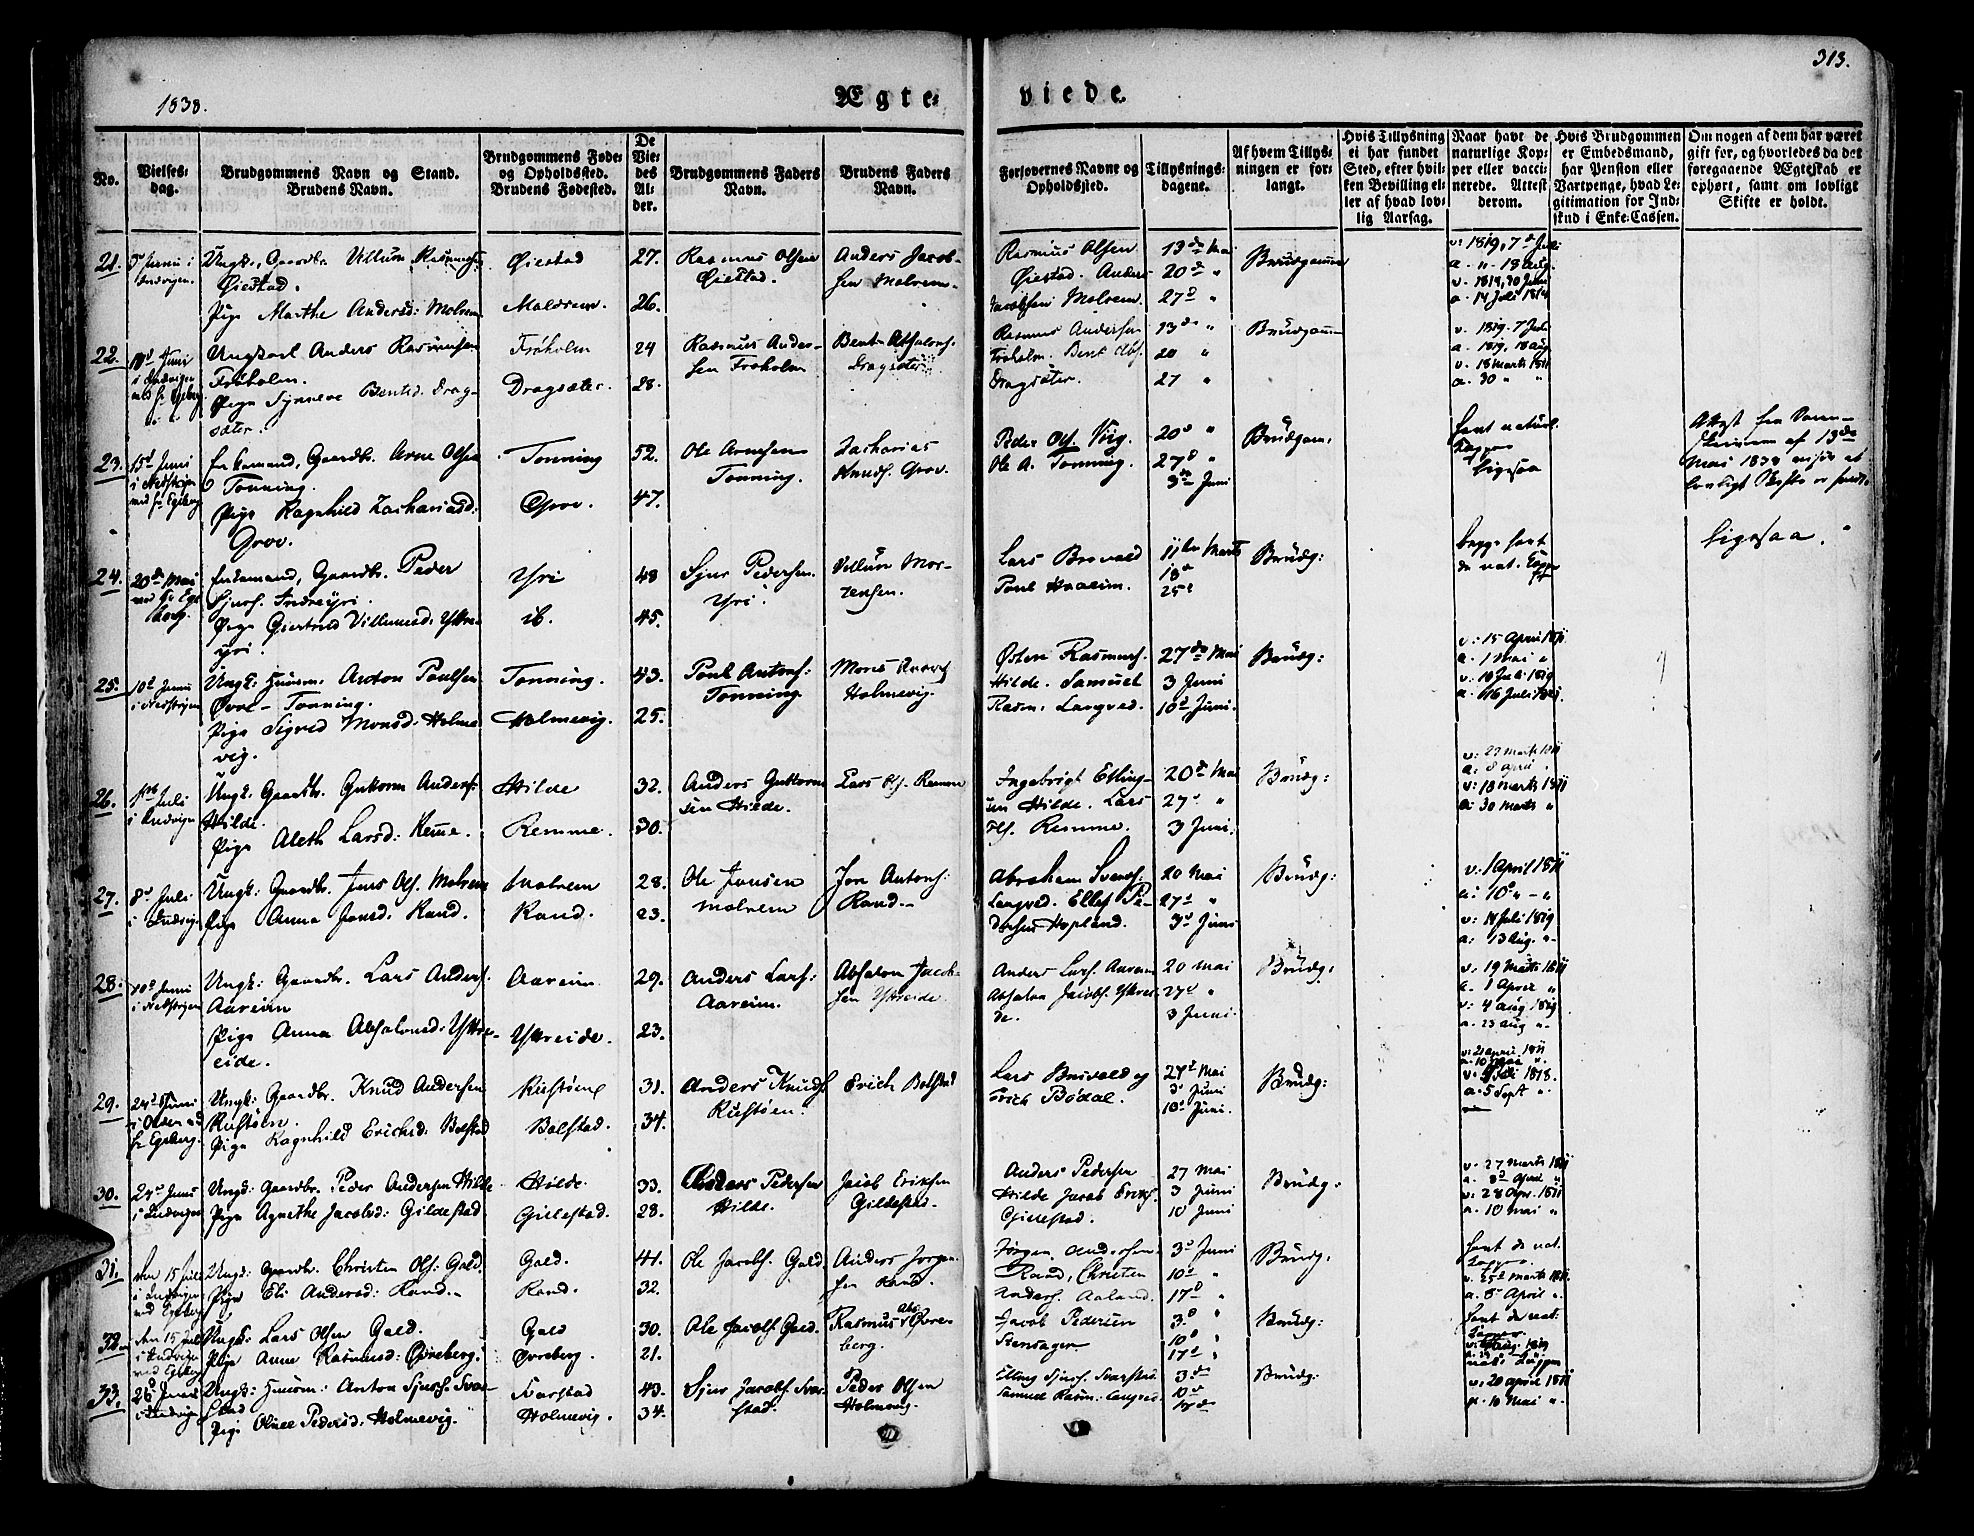 1838.
Ægte=
viede.
313.
No.
Vielses-
dag.
Brudgommens Navn og Stand.
Brudens Navn.
Brudgommens Føde-
og Opholdssted.
Brudens Fødested.
De
Vie-
des
Al-
der.
Brudgommens Faders
Navn.
Brudens Faders
Navn.
Forlovernes Navne og
Opholdssted.
Tillysnings-
dagene.
Af hvem Tillys-
ningen er for-
langt.
Hvis Tillysning
ei har fundet
Sted, efter hvil-
ken Bevilling el-
ler af hvad lov-
lig Aarsag.
Naar havt de
naturlige Kop-
per eller vacci-
nerede. Attest
derom.
Hvis Brudgommen
er Embedsmand,
har Pension eller
Vartpenge, hvad Le-
gitimation for Ind-
skud i Enke-Cassen.
Om nogen af dem har været
gift før, og hvorledes da det
foregaaende Ægteskab er
ophørt, samt om lovligt
Skifte er holdt.
21.
Ungk., Gaardbr. Villum Rasmuss.
Øiestad.
Pige Marthe Andersd: Molrem
Øiestad
Moldrem.
27.
26.
Rasmus Olsen
Øiestad.
Anders Jacob-
sen Molrem.
Rasmus Olsen
Øiestad. Anders
Jacobsen Molrem.
13de Mai
20d "
27d "
Brudgommen
v: 1819, 7d Juli
a. 18 aug.
v. 1819, 30 Juni
a. 14 Juli 1814
22.
18d Juni
i Indvigen
Ungkarl Anders Rasmusen
Frøholm.
Pige Synneve Bentsd. Drag-
sæter.
Frøholm
Dragsæter.
24
28.
Rasmus Ander-
sen Frøholm
Bent Absalons.
Dragsæter
Rasmus Andersen
Frøholm. Bent Abs.
Dragsæter.
13de "
20 "
27 "
Brudgom
v. 1819. 7 Juli
a. 1819, 18 aug
v. 18 marts 1811
a. 30 " "
23.
15d Juni
i Nedstryn
med hr Egeberg
Enkemand, Gaardbr. Arne Olsen
Tonning.
Pige Ragnhild Zachariasd:
Grov.
Tonning
Grov.
52.
47.
Ole Arnesen
Tonning.
Zacharias
Knuds. Grov.
Peder Ols. Virg.
Ole A. Tonning.
20d "
27d "
3de Juni
Brudgom:
havt naturl.
Kopper
ligesaa
Attest fra Soren-
skriveren af 13de
Mai 1838 at
lovligt Skifte er
24.
20de Mai
Enkemand, Gaardbr. Peder
Sjurs. Indreyri.
Pige Giertrud Villumsd: Yttre-
yri.
Yri
ib.
48
45.
Sjur Pedersen
Yri.
Villum Mor-
tensen.
Lars Brevald
Poul Haaeim.
11te Marts
18d
25d
Brudg:
begge havt
de nat. Kopper
Ligesaa.
25.
10d Juni
i Nedstryn
Ungk: Huusm. Anton Poulsen
Øvre-Tonning.
Pige Sigred Monsd: Holme-
vig.
Tonning.
Holmevig.
43.
25.
Poul Antons:
Tonning.
Mons
Holmevig.
Østen Rasmuss.
Hilde. Samuel
Rasm. Langved.
27de Mai
3 Juni
10d Juni.
Brudg:
v: 15 April 1811
a. 1 Mai "
v. 10 Juli 1819
a. 16 Juli 1821.
26.
1ste Juli
i Indvigen
Ungk: Gaardbr. Guttorm Anders:
Hilde.
Pige Aleth Larsd: Remme.
Hilde
Remme.
32.
30.
Anders Guttorm-
sen Hilde.
Lars Ols. Remme
Ingebrigt Elling-
sen Hilde. Lars
Ols. Remme.
20d Mai
27d "
3 Juni.
Brudg:
v: 27 marts 1811
a: 8 april
v: 18 marts 1811
a: 30 marts "
27.
8d Juli
i Indvigen
Ungk: Gaardbr. Jens Ols. Molrem
Pige Anna Jonsd. Rand.
Molrem
Rand.
28.
23.
Ole Jonsen
Molrem
Jon Antons:
Rand.
Abraham Svens.
Langved. Ellef Pe-
dersen Hopland.
20 Mai
27d "
3d Juni
Brudg:
v. 1 April 1811
a: 10d " - "
v: 14 Juli 1819
a: 13 aug. "
28.
10d Juni
i Nedstryn
Ungk: Gaardbr. Lars Anders.
Aareim
Pige Anna Absalonsd: Yttre-
eide.
Aareim.
Yttreide.
29.
23.
Anders Lars:
Aareim.
Absalon Jacob-
sen Yttreide.
Anders Lars. Aareim
Absalon Jacobs. Yttrei-
de.
20 Mai
27d "
3 Juni.
Brudg:
v: 19 Marts 1811
a. 1 April "
v: 4 aug 1819
a. 23 aug "
29.
24d Juni
i Olden ved
hr Egeberg.
Ungk: Gaardbr. Knud Andersen
Rustøen.
Pige Ragnhild Erichsd: Bolstad
Rustøen
Bolstad.
31.
34.
Anders Knuds.
Rustøen.
Erich Bolstad
Lars Brevald og
Erich Bødal.
27d Mai
3d Juni
10d Juni.
Brudg:
v: 21 april 1811
a. 10 Mai "
v: Juli 1818.
a. 5 Sept "
30.
24d Juni
i Indvigen
Ungk: Gaardbr. Peder Andersen Hilde
Pige Agnethe Jacobsd: Gildestad
Hilde.
Gillestad.
33.
28.
Anders Pedersen
Hilde.
Jacob Eriksen
Gildestad.
Anders Pedersen
Hilde Jacob Eriks.
Gillestad.
27 Mai
3 Juni
10 Juni
Brudg:
v. 27 Marts 1811
a. 8d April "
v: 28 Apr. 1811
a. 10 Mai "
31.
den 15 Juli
i Indvigen
ved Egeberg
Ungk: Gaardbr. Christen Ols: Gald.
Pige Eli Andersd: Rand.
Gald.
Rand.
41.
32.
Ole Jacobs. Gald
Anders Jørgen-
sen Rand.
Jørgen Andersen
Rand, Christen
Anders. Aaland.
3d Juni
10d "
17d
Brudg:
havt de nat.
Kopper.
v. 25d Marts 1811.
a. 5 April "
32.
den 15 Juli
i Indvigen
ved Egeberg
Ungk: Lars Olsen Gald.
Pige Anne Rasmusd: Øvreberg.
Gald
Øvreberg.
30.
21.
Ole Jacobs. Gald.
Rasmus Abs. Øvre-
berg.
Jacob Pedersen
Stensager
3d "
10d "
17d "
Brudg:
havt de nat:
Kopper
33.
i Indvigen
Ungk: Huusm: Anton Sjurs. Svar-
stad
Pige Oline Pedersd. Holmevig.
Svarstad
Holmevig.
43.
34.
Sjur Jacobs. Svar-
stad.
Peder Olsen
Holmevig.
Elling Sjurs. Svarstad
Samuel Rasm: Langved
3de
10d
17de
Brudg:
nat. Kopper
v: 20 april 1811
a. 10 Mai "